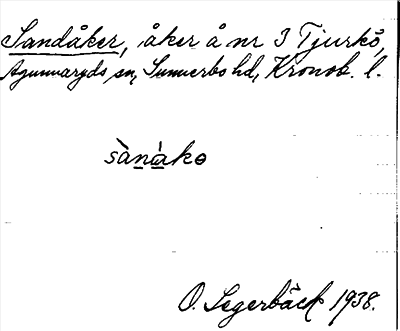 Sandåker, åker å nr 3 Tjurkö,
Agunnaryds sn, Sunnerbo hd, Kronob. l.
sànáko
O. Segerbäck 1938.